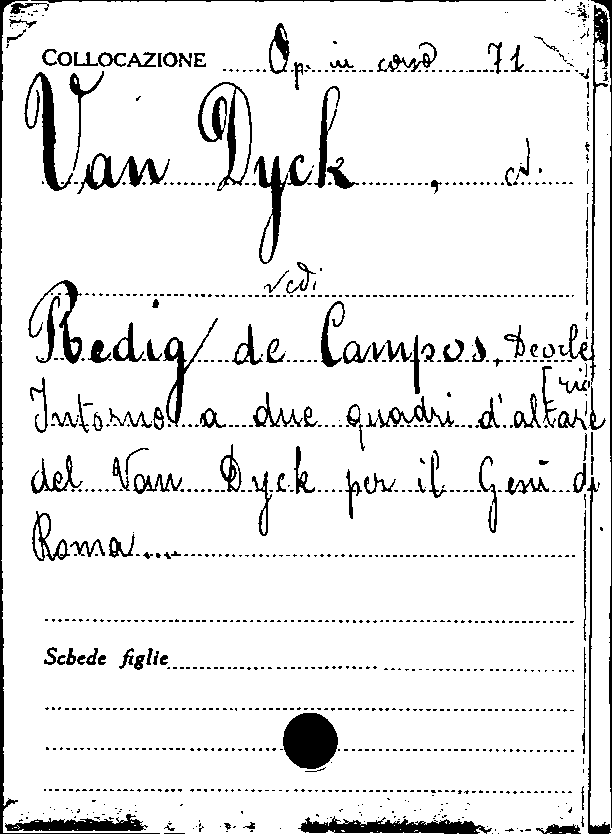 COLLOCAZIONE Op. in corso 71
Van Dyck, A.
vedi
Redig de Campos, Deocle
[rio
Intorno a due quadri d'altare
del Van Dyck per il Gesù di
Roma....
Schede figlie